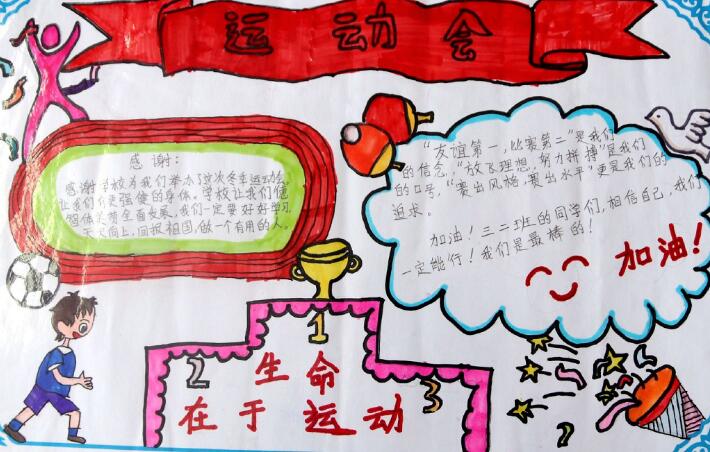 运动会
感谢：
感谢学校为我们举办了这次冬季运动会，
让我们有更强健的身体。学校让我们德
智体美劳全面发展，我们一定要好好学习
天天向上，回报祖国，做一个有用的人。
"友谊第一，比赛第二"是我们
的信念，"放飞理想，努力拼搏"是我们
的口号，"赛出风格，赛出水平"更是我们的
追求。
加油！三二班的同学们，相信自己，我们
一定能行！我们是最棒的！
加油！
1
2
3
生命
在于运动